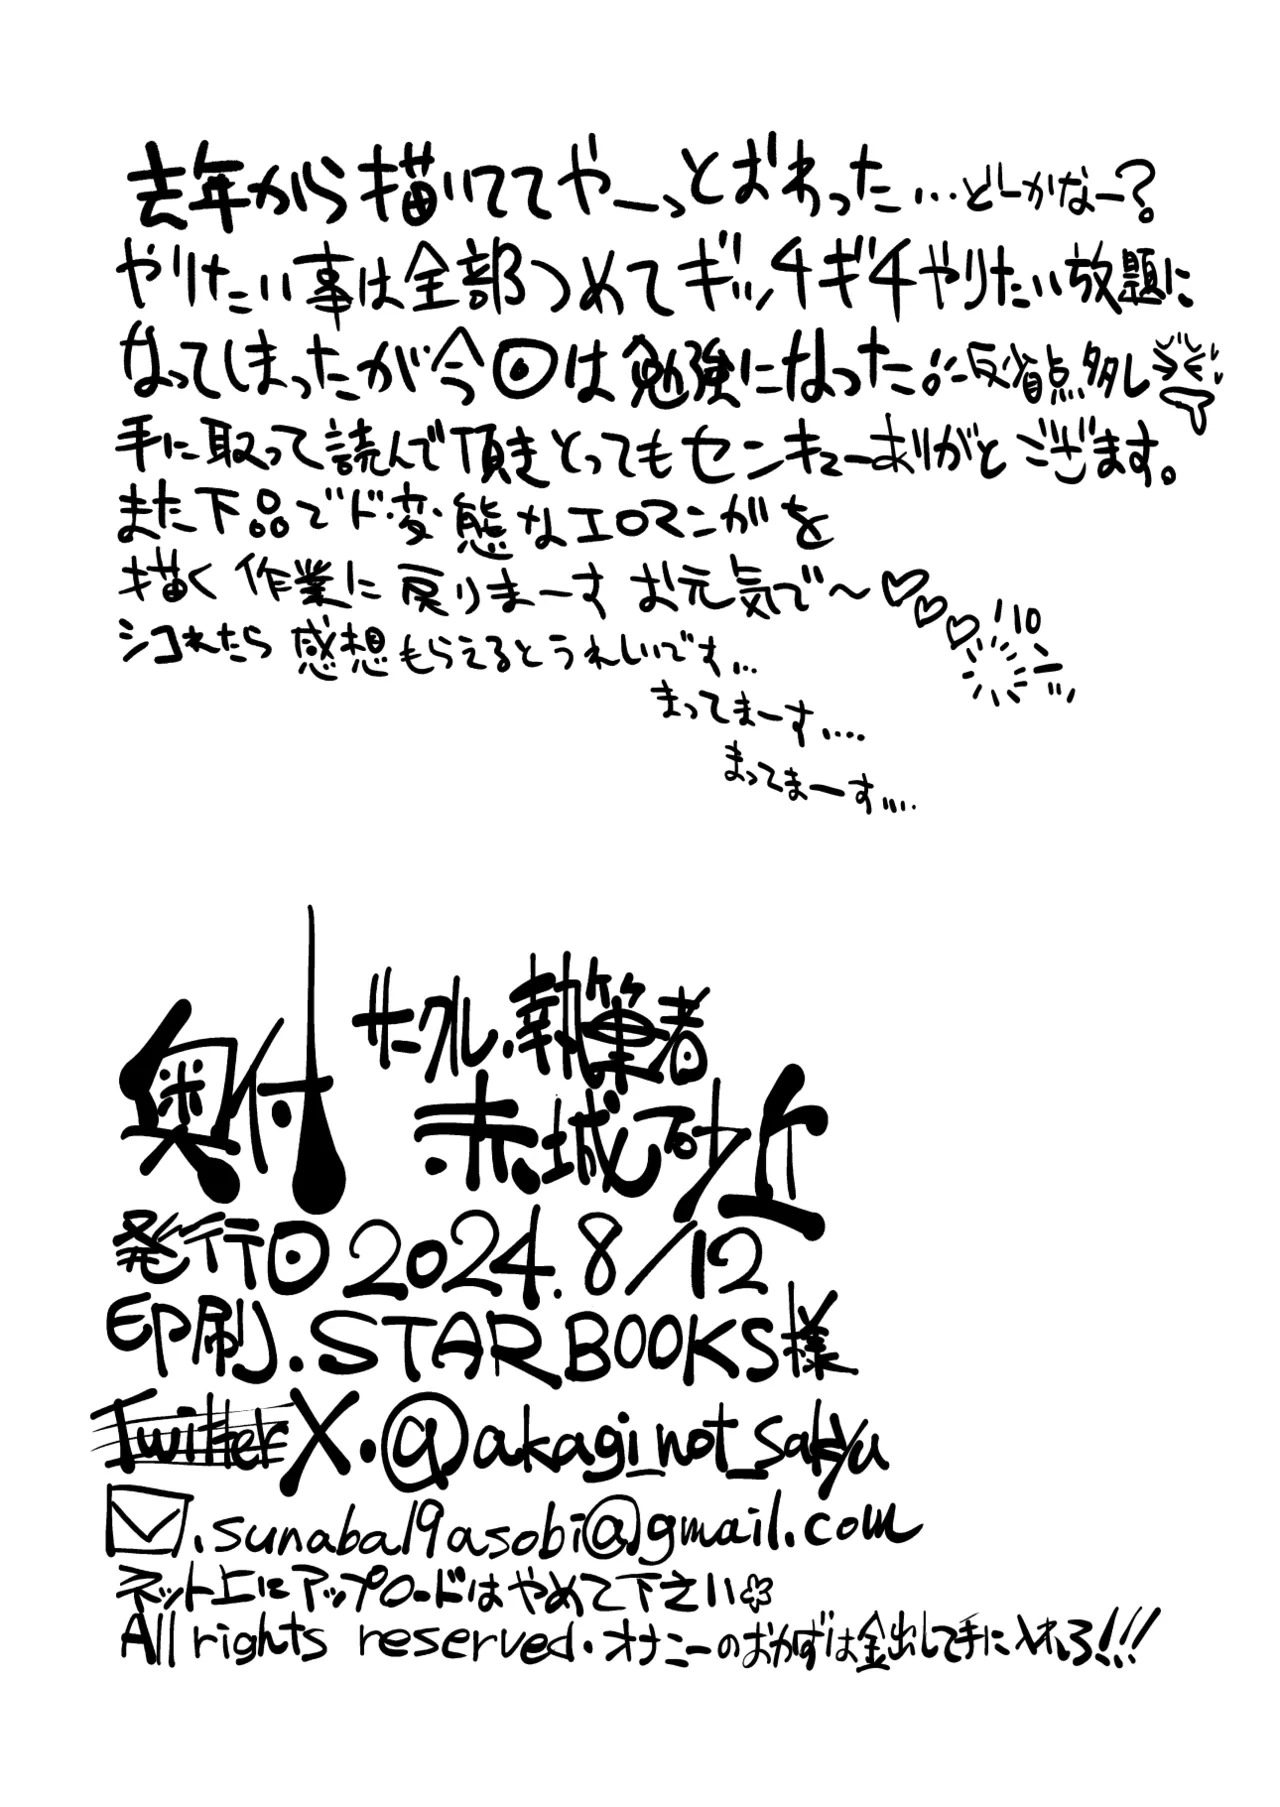 去年から描いててやーっとおわった…どーかなー?
やりたい事は全部つめてギッチギチやりたい放題に
なってしまったが今回は勉強になった!反省点多し
手に取って読んで頂きとってもセンキューありがとうございます。
また下品でド変態なエロマンガを
描く作業に戻りまーすお元気で〜♡♡♡
シコれたら感想もらえるとうれしいです…
まってまーす....
まってまーす....
奥付
サークル.執筆者
赤城砂丘
発行日2024.8/12
印刷.STAR BOOKS様
Twitter X.@akagi_not_sakyu
.sunaba19asobi@gmail.com
ネット上にアップロードはやめて下さい
All rights reserved.オナニーのおかずは金出して手に入れろ!!!